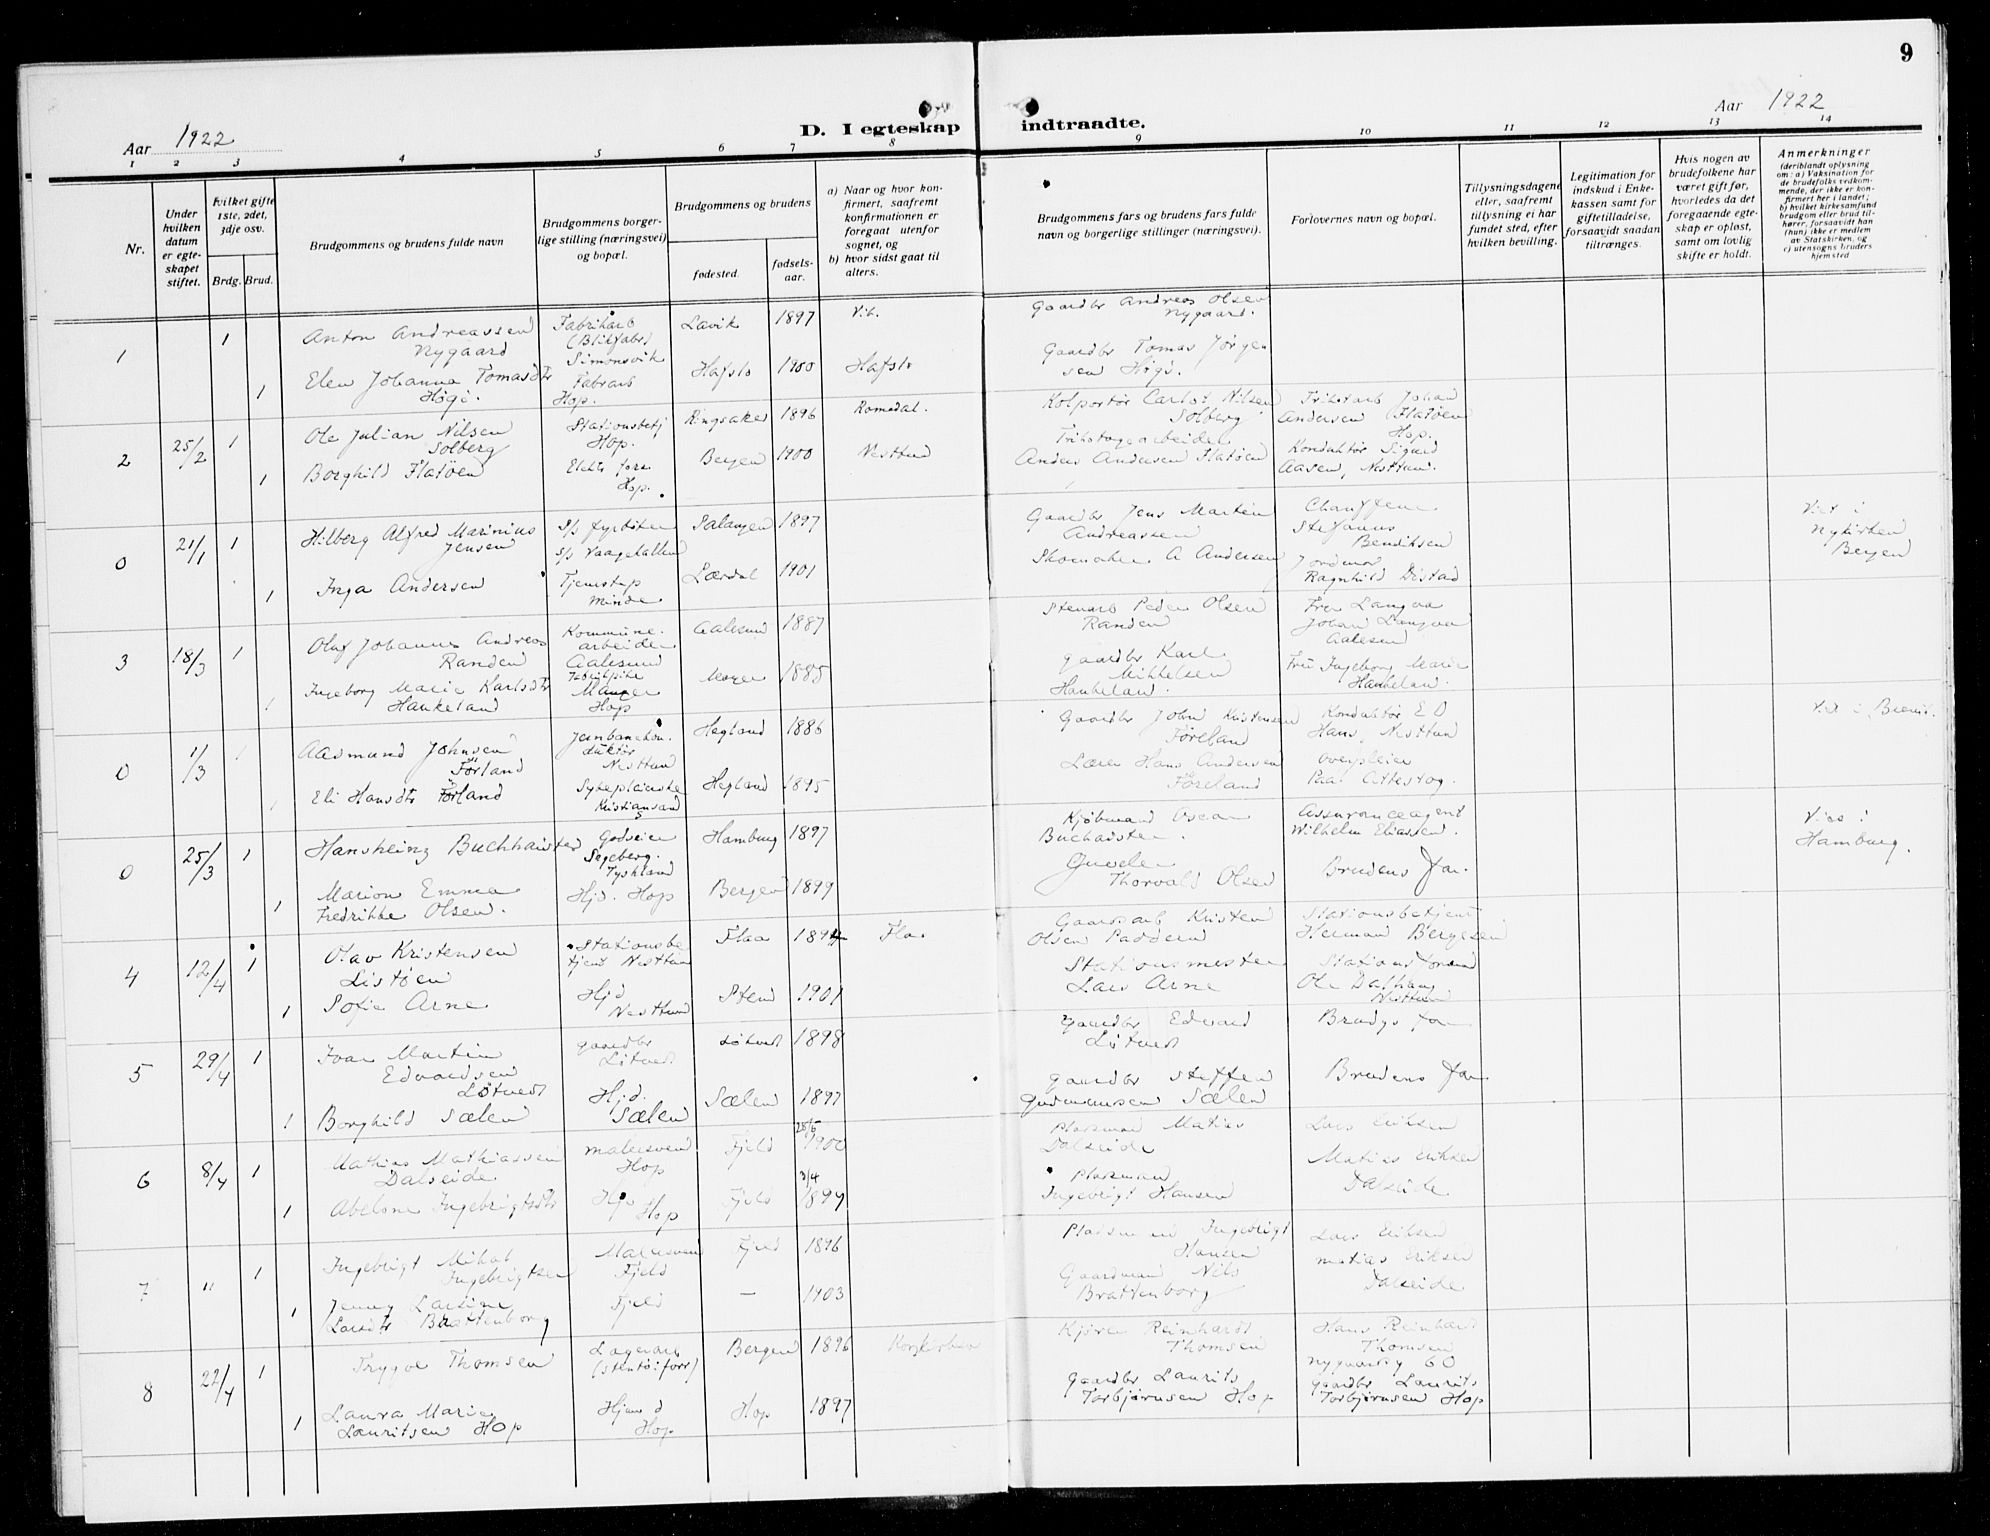 9
Aar 1922
D. I egteskap indtraadte.
Aar 1922
1 2 3 4 5 6 7 8 9 10 11 12 13 14
Nr.
Under hvilken datum er egteskapet stiftet.
Hvilket gifte 1ste, 2det, 3dje osv.
Brdg. Brud.
Brudgommens og brudens fulde navn
Brudgommens borgerlige stilling (næringsvei) og bopæl.
Brudgommens og brudens
fødested.
fødselsaar.
a) Naar og hvor konfirmert, saafremt konfirmationen er foregaat utenfor sognet, og
b) hvor sidst gaat til alters.
Brudgommens fars og brudens fars fulde navn og borgerlige stillinger (næringsvei).
Forlovernes navn og bopæl.
Tillysningsdagene eller, saafremt tillysning ei har fundet sted, efter hvilken bevilling.
Legitimation for indskud i Enkekassen samt for giftetilladelse, forsaavidt saadan tiltrænges.
Hvis nogen av brudefolkene har været gift før, hvorledes da det foregaaende egteskap er opløst, samt om lovlig skifte er holdt.
Anmerkninger
(deriblandt oplysning om: a) Vaksination for de brudefolks vedkommende, der ikke er konfirmert her i landet; b) hvilket kirkesamfund brudgom eller brud tilhører, forsaavidt han (hun) ikke er medlem av Statskirken, og c) utensogns bruders hjemsted
1 1 Anton Andreassen Nygaard Fabrikarb (Blikfabr) Simonsvik Lavik 1897 Vik. Gaardbr Andreas Olsen Nygaard.
1 Elen Johanna Tomasdtr Høgi. Fabrarb Hop. Hafslo 1900 Hafslo Gaardbr Tomas Jørgensen Høgi.
2 25/2 1 Ole Julian Nilsen Solberg Stationsbetj Hop. Ringsaker 1896 Romedal. Kolportør Carlot Nilsen Solberg Trikotarb Johan Andersen Flatøen Hop.
1 Borghild Flatøen Hop. Bergen 1900 Nesttun Trikotagearbeider Anders Andersen Flatøen Konduktør Sigurd Aasen, Nesttun.
0 21/1 1 Hilberg Alfred Marinius Jensen S/s fyrbøter S/s Vaagekallen Salangen 1897 Gaardbr Jens Martin Andreassen Chauffeur Stefanus Bendiksen Viet i Nykirken Bergen
1 Inga Andersen Tjenestep Minde Lærdal 1901 Skomaker A Andersen Jordmor Ragnhild Distad
3 18/3 1 Olaf Johannes Andreas Randen Kommunearbeider Aalesund Aalesund 1887 Peder Olsen Randen Fru Langva Johan Langva Aalesen
1 Ingeborg Marie Karlsdtr Haukeland Fabrikpike Manger Hop Manger 1885 Gaardbr Karl Mikkelsen Haukeland. Fru Ingeborg Marie Haukeland.
0 1/3 1 Aasmund Johnsen Førland Jernbanekonduktør Nesttun Hegland 1886 Gaardbr John Kristensen Føreland Konduktør E D Hans, Nesttun Viet i
1 Eli Hansdtr Førland Sykepleierske Kristiansand S Hegland 1895 Lærer Hans Andersen Føreland
0 25/3 1 Hansheinz Buchhaister Godseier Segeberg. Tyskland Hamburg 1897 Kjøbmand Oscar Buchaister. Assuranceagent Wilhelm Eliassen. Viet i Hamburg.
1 Marion Emma Fredrikke Olsen. Hjd. Hop Bergen 1899 Thorvald Olsen Brudens far.
4 12/4 1 Olav Kristensen Listøen Stationsbetjent Nesttun Flaa 1894 Flaa Gaardsarb Kristen Olsen Stationsbetjent Herman Bergesen
1 Sofie Arne Hjd Nesttun Stend 1901 Stationsmester Lars Arne Ole Dalhaug Nesttun
5 29/4 1 Ivar Martin Edvardsen Løtvedt gaardbr Løtvedt Løtvedt 1898 gaardbr Edvard Løtvedt Brudgs far
1 Borghild Sælen Hjd. Sælen Sælen 1897 gaardbr Steffen Gudmundsen Sælen Brudens far
6 8/4 1 Mathias Mathiassen Dalseide malersvend Hop Fjeld 25/5 1900 Pladsmand Matias Dalseide Lars Eriksen
1 Abelone Ingebrigtsdtr Hjd Hop Fjeld 3/4 1899 pladsmand Ingebrigt Hansen Matias Eriksen Dalseide
7 " 1 Ingebrigt Mikal Ingebrigtsen Malersvend Fjeld Fjeld 1896 Pladsmand Ingebrigt Hansen Lars Eriksen
1 Jenny Larsine Larsdtr Brattenborg Fjeld — 1903 Gaardmand Nils Brattenborg Matias Eriksen Dalseide
8 22/4 1 Trygve Thomsen Lagerarb (stentøiforr) Bergen 1896 Korskirken Reinhardt Thomsen Hans Reinhardt Thomsen Nygaardsg 60
1 Laura Marie Lauritsen Hop Hjemme Hop Hop 1897 gaardbr Laurits Torbjørnsen Hop gaardbr Laurits Torbjørnsen Hop